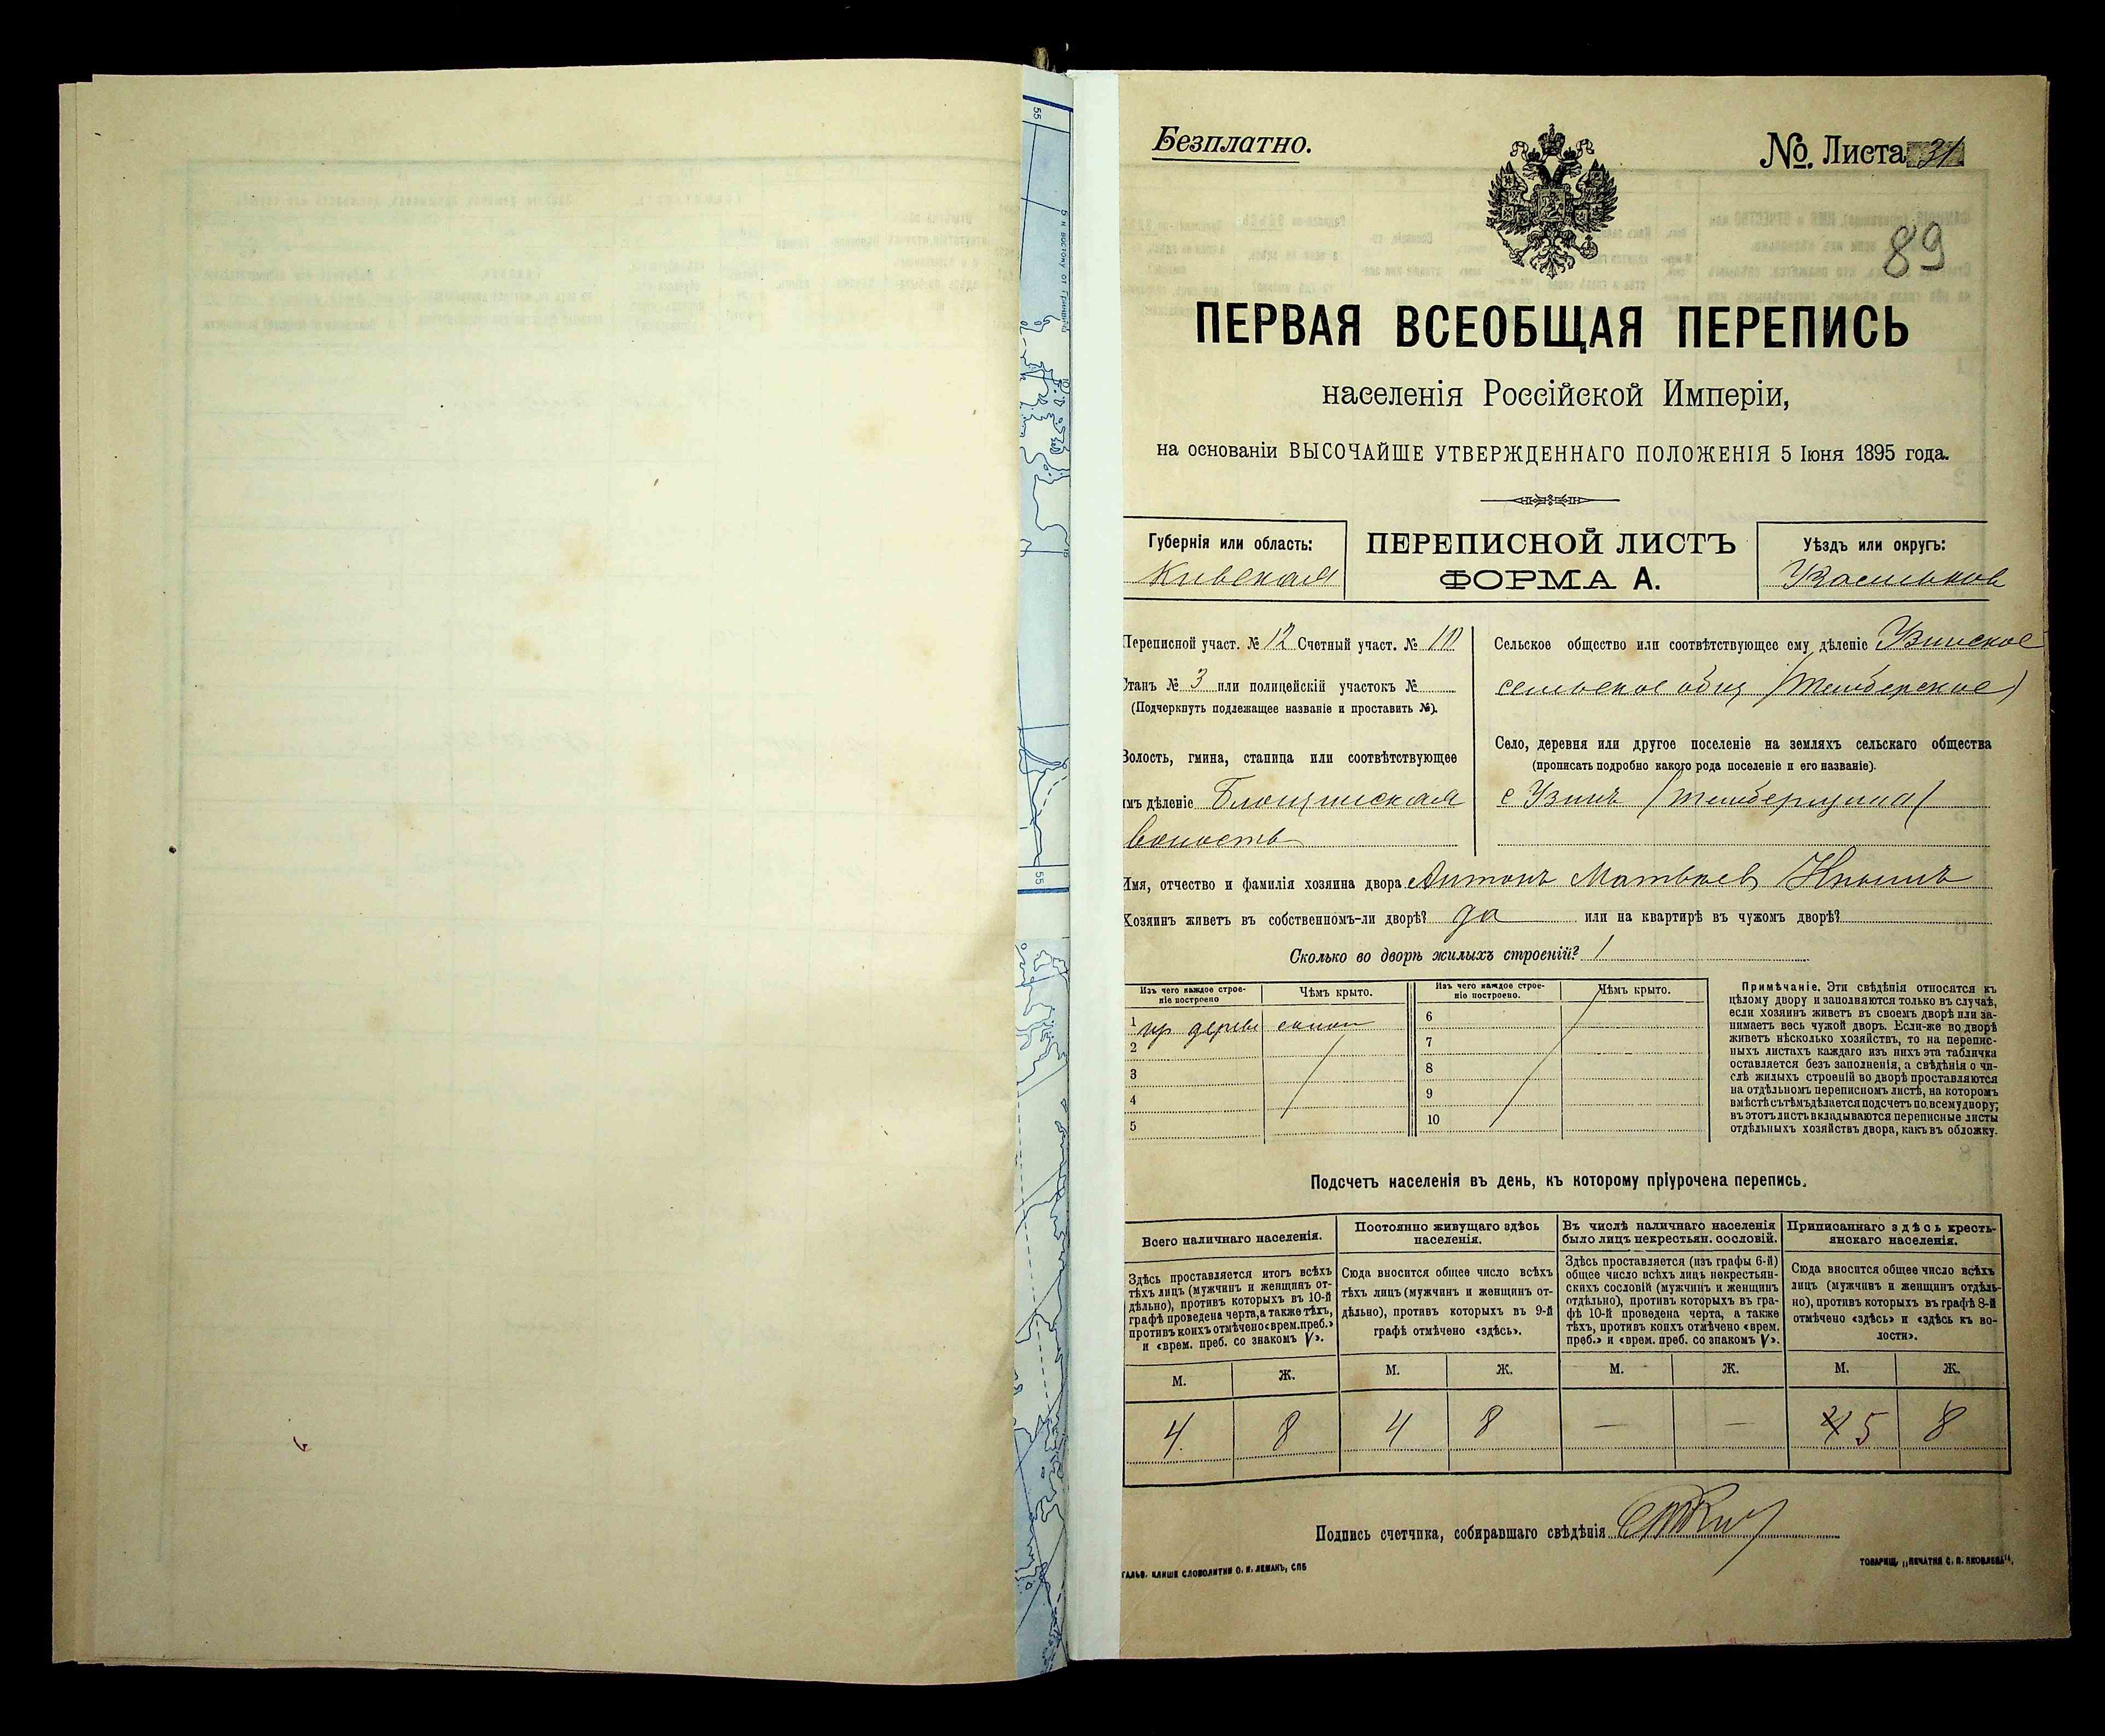 Безплатно.
№ Листа 31
89
ПЕРВАЯ ВСЕОБЩАЯ ПЕРЕПИСЬ
населенія Россійской Имперіи,
на основаніи ВЫСОЧАЙШЕ УТВЕРЖДЕННАГО ПОЛОЖЕНІЯ 5 Іюня 1895 года.
Губернія или область:
Киевская
ПЕРЕПИСНОЙ ЛИСТЪ
ФОРМА А.
Уѣздъ или округъ:
Васильков
Переписной участ. № 12 Счетный участ. № 10
Станъ № 3 или полицейскій участокъ №
(Подчеркнуть подлежащее названіе и проставить №).
Волость, гмина, станица или соотвѣтствующее
имъ дѣленіе Блощинская
волость
Сельское общество или соотвѣтствующее ему дѣленіе Узинское
сельское общ
Село, деревня или другое поселеніе на земляхъ сельскаго общества
(прописать подробно какого рода поселеніе и его названіе).
с Узинъ
Имя, отчество и фамилія хозяина двора Антонъ Матвѣев
Хозяинъ живетъ въ собственномъ-ли дворѣ? да или на квартирѣ въ чужомъ дворѣ?
Сколько во дворѣ жилыхъ строеній? 1
Изъ чего каждое строе-
ніе построено
Чѣмъ крыто.
Изъ чего каждое строе-
ніе построено.
Чѣмъ крыто.
1 дерева солом
2
3
4
5
6
7
8
9
10
Примѣчаніе. Эти свѣдѣнія относятся къ
цѣлому двору и заполняются только въ случаѣ,
если хозяинъ живетъ въ своемъ дворѣ или за-
нимаетъ весь чужой дворъ. Если-же во дворѣ
живетъ нѣсколько хозяйствъ, то на перепис-
ныхъ листахъ каждаго изъ нихъ эта табличка
оставляется безъ заполненія, а свѣдѣнія о чи-
слѣ жилыхъ строеній во дворѣ проставляются
на отдѣльномъ переписномъ листѣ, на которомъ
вмѣстѣ съ тѣмъ дѣлается подсчетъ по всему двору;
въ этотъ листъ вкладываются переписные листы
отдѣльныхъ хозяйствъ двора, какъ въ обложку.
Подсчетъ населенія въ день, къ которому пріурочена перепись.
Всего наличнаго населенія.
Здѣсь проставляется итогъ всѣхъ
тѣхъ лицъ (мужчинъ и женщинъ от-
дѣльно), противъ которыхъ въ 10-й
графѣ проведена черта, а также тѣхъ,
противъ коихъ отмѣчено «врем. преб.»
и «врем. преб. со знакомъ V».
Постоянно живущаго здѣсь
населенія.
Сюда вносится общее число всѣхъ
тѣхъ лицъ (мужчинъ и женщинъ от-
дѣльно), противъ которыхъ въ 9-й
графѣ отмѣчено «здѣсь».
Въ числѣ наличнаго населенія
было лицъ некрестьян. сословій.
Здѣсь проставляется (изъ графы 6-й)
общее число всѣхъ лицъ некрестьян-
скихъ сословій (мужчинъ и женщинъ
отдѣльно), противъ которыхъ въ гра-
фѣ 10-й проведена черта, а также
тѣхъ, противъ коихъ отмѣчено «врем.
преб.» и «врем. преб. со знакомъ V».
Приписаннаго здѣсь кресть-
янскаго населенія.
Сюда вносится общее число всѣхъ
лицъ (мужчинъ и женщинъ отдѣль-
но), противъ которыхъ въ графѣ 8-й
отмѣчено «здѣсь» и «здѣсь къ во-
лости».
М. Ж. М. Ж. М. Ж. М. Ж.
4. 8 4 8 — — 4 5 8
Подпись счетчика, собиравшаго свѣдѣнія
ГАЛЬВ. КЛИШЕ СЛОВОЛИТНИ О. И. ЛЕМАНЪ, СПБ
ТОВАРИЩ. „ПЕЧАТНЯ С. П. ЯКОВЛЕВА“.
55
к востоку от Гринвича
55